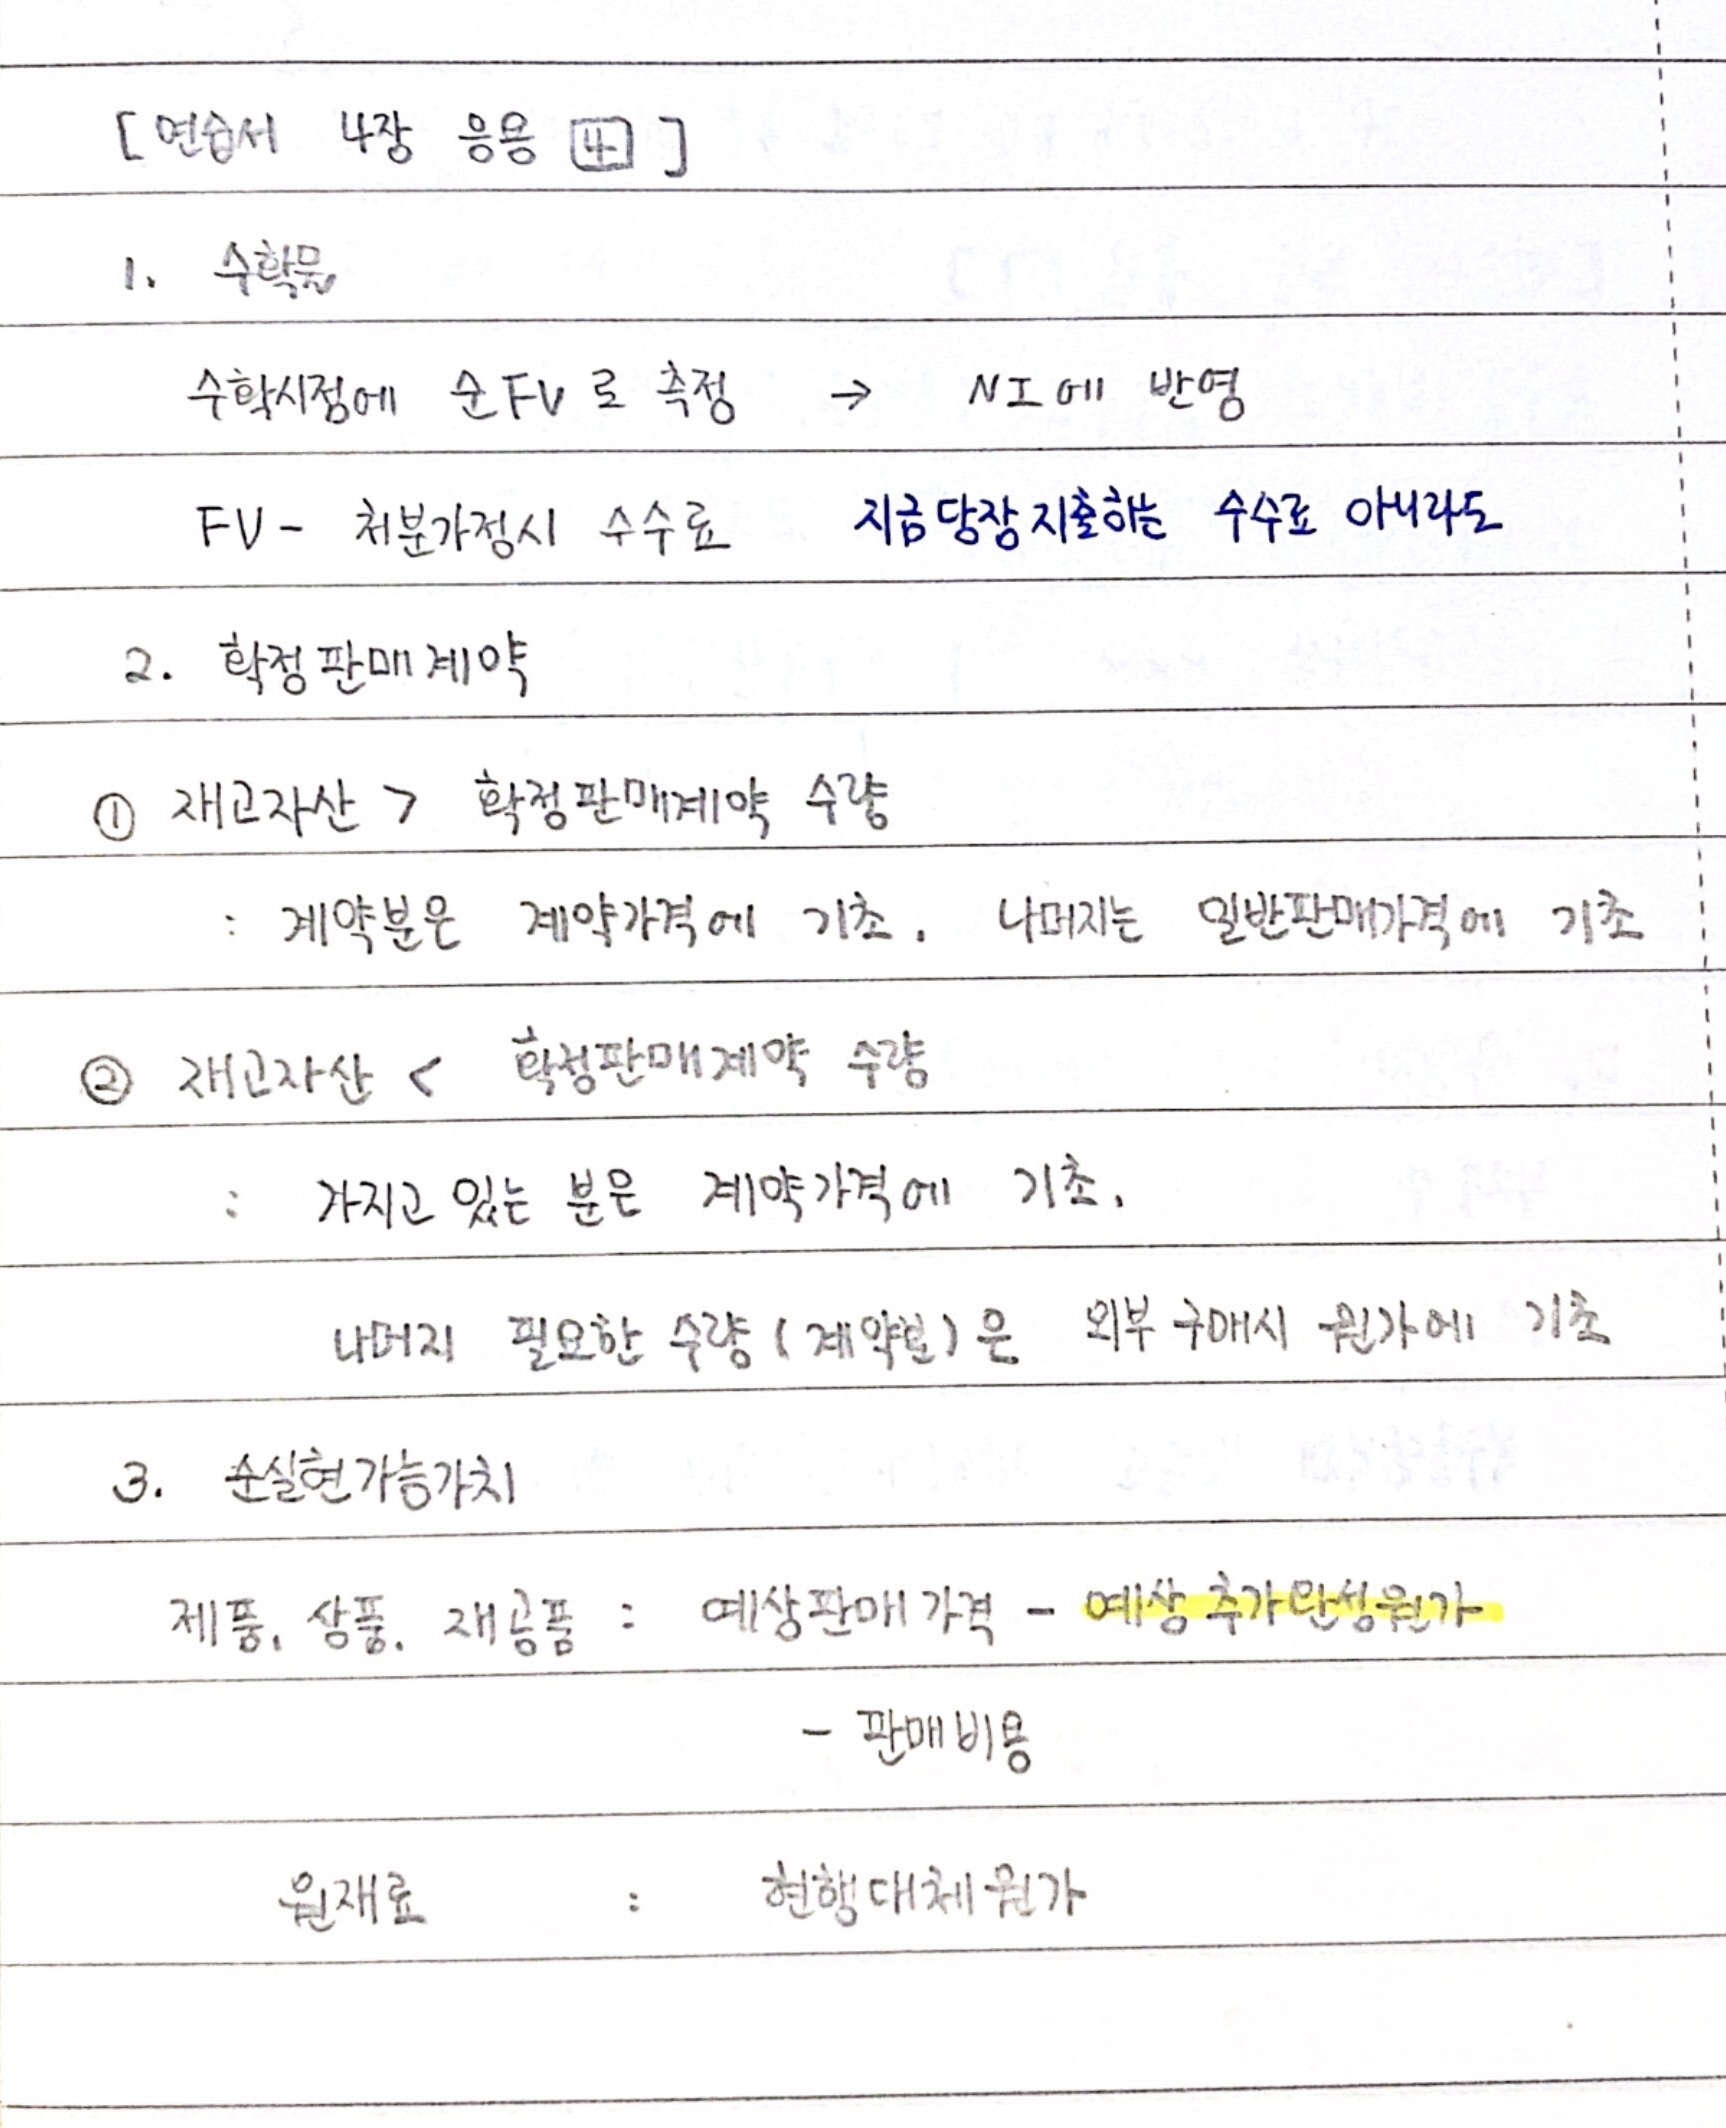 [ 연습서 4장 응용 4 ]
1. 수확물
수확시점에 순FV로 측정 → NI에 반영
FV - 처분가정시 수수료 지금당장지출하는 수수료 아니라도
2. 확정판매계약
① 재고자산 > 확정판매계약 수량
: 계약분은 계약가격에 기초. 나머지는 일반판매가격에 기초
② 재고자산 < 확정판매계약 수량
: 가지고 있는 분은 계약가격에 기초.
나머지 필요한 수량(계약분)은 외부구매시 원가에 기초
3. 순실현가능가치
제품, 상품, 재공품 : 예상판매가격 - 예상추가완성원가
- 판매비용
원재료 : 현행대체원가